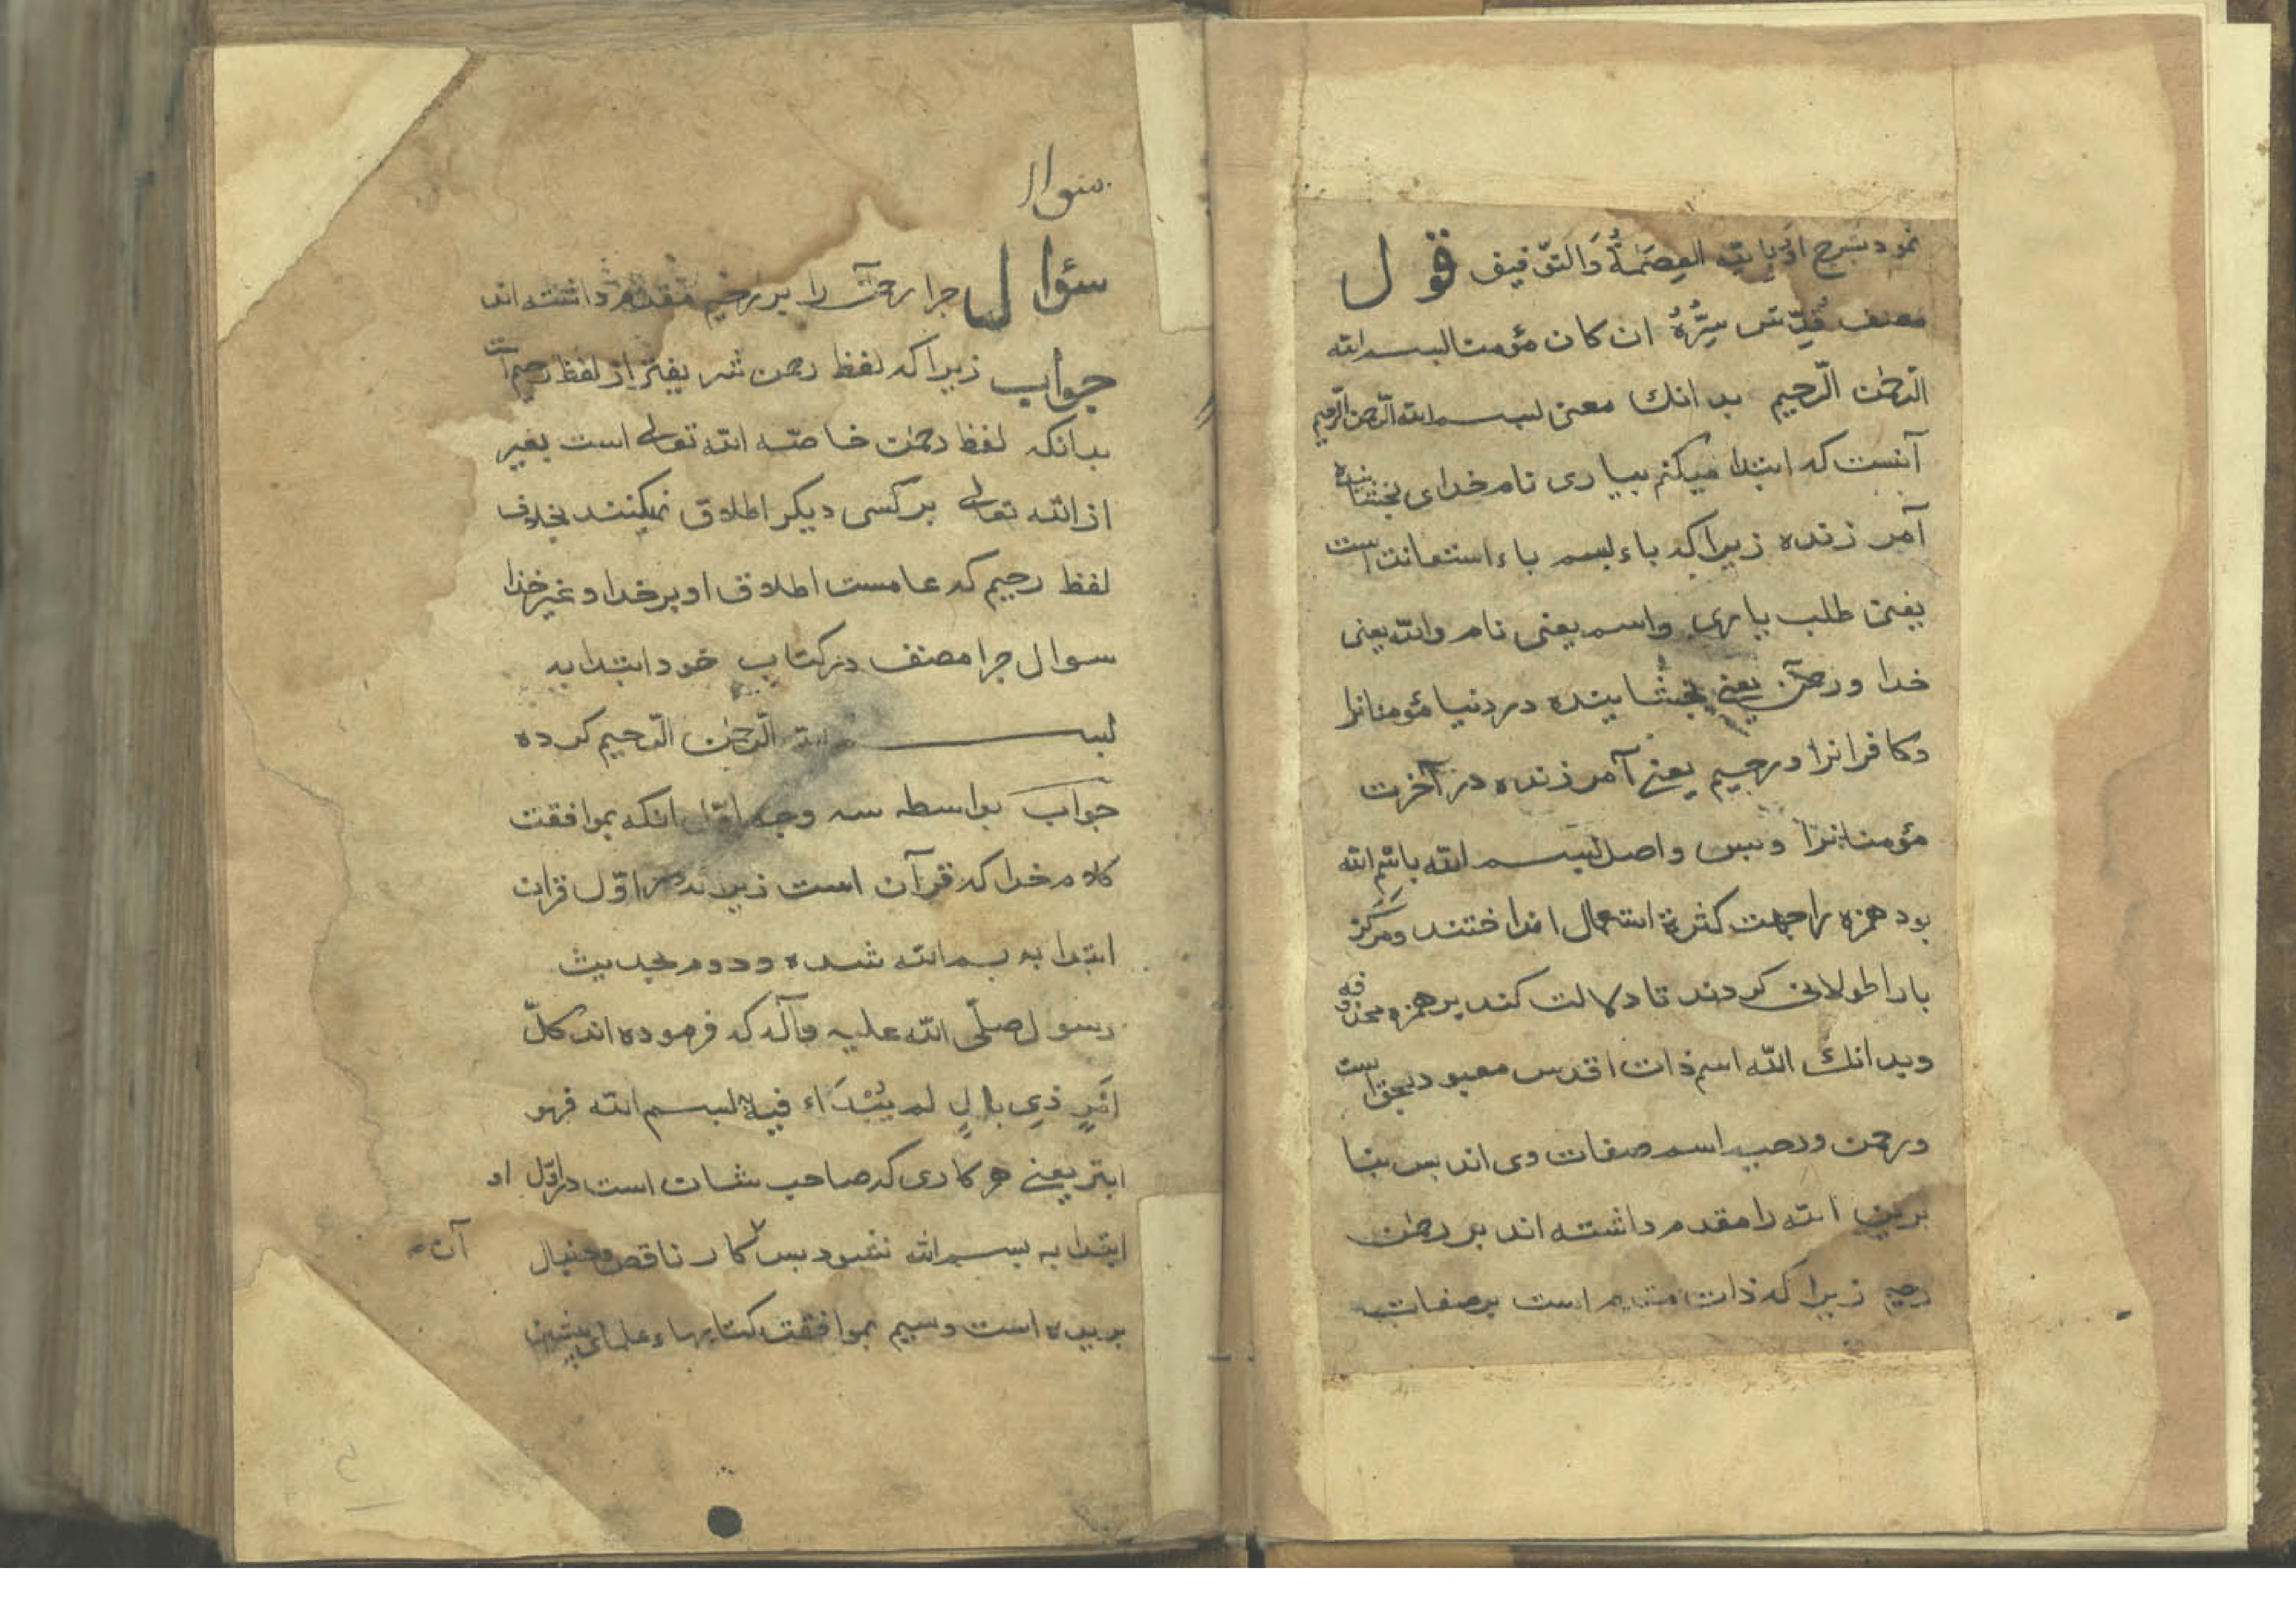 نمود بشرح او وبالله العِصمَةُ وَالتّوفیق قول
مصنف قُدِّسَ سِرُّهُ ان کان مؤمنا بسم الله
الرّحمٰن الرّحیم بدانک معنی بسم الله الرّحمن الرّحیم
آنست که ابتدا میکنم بیاری نام خدای بخشاینده
آمرزنده زیرا که باء بسم باء استعانت است
یعنی طلب یاری واسم یعنی نام والله یعنی
خدا ورحمن یعنی بخشاینده در دنیا مؤمنانرا
وکافرانرا ورحیم یعنی آمرزنده در آخرت
مؤمنانرا وبس واصل بسم الله باسم الله
بود همزه را جهت کثرة استعمال انداختند ومرکز
بارا طولانی کردند تا دلالت کند بر همزه محذوفه
وبدانک اللّه اسم ذات اقدس معبود بحق است
ورحمن ورحیم اسم صفات وی اند پس بنا
برین الله را مقدم داشته اند بر رحمٰن
رحیم زیرا که ذات مقدم است بر صفات
سوال
سؤال چرا رحمن را بر رحیم مقدم داشته اند
جواب زیرا که لفظ رحمن شریفتر از لفظ رحیم است
بدانکه لفظ رحمٰن خاصّه الله تعالی است بغیر
از الله تعالی بر کسی دیگر اطلاق نمیکنند بخلاف
لفظ رحیم که عامست اطلاق او بر خدا و غیر خدا
سوال چرا مصنف در کتاب خود ابتدا به
بسم الله الرّحمن الرّحیم کرده
جواب بواسطه سه وجه اوّل انکه بموافقت
کلام خدا که قرآن است زیرا که در اوّل قران
ابتدا به بسم الله شده ودوم بحدیث
رسول صلّی الله علیه وآله که فرموده اند کلّ
اَمْرٍ ذِی بالٍ لم یُبْدَاء فیه ببسم الله فهو
ابتر یعنی هر کاری که صاحب شان است در اوّل او
ابتدا به بسم الله نشود پس کار ناقص ودنبال آن
بریده است وسیم بموافقت کتابهاء علمای پیشین